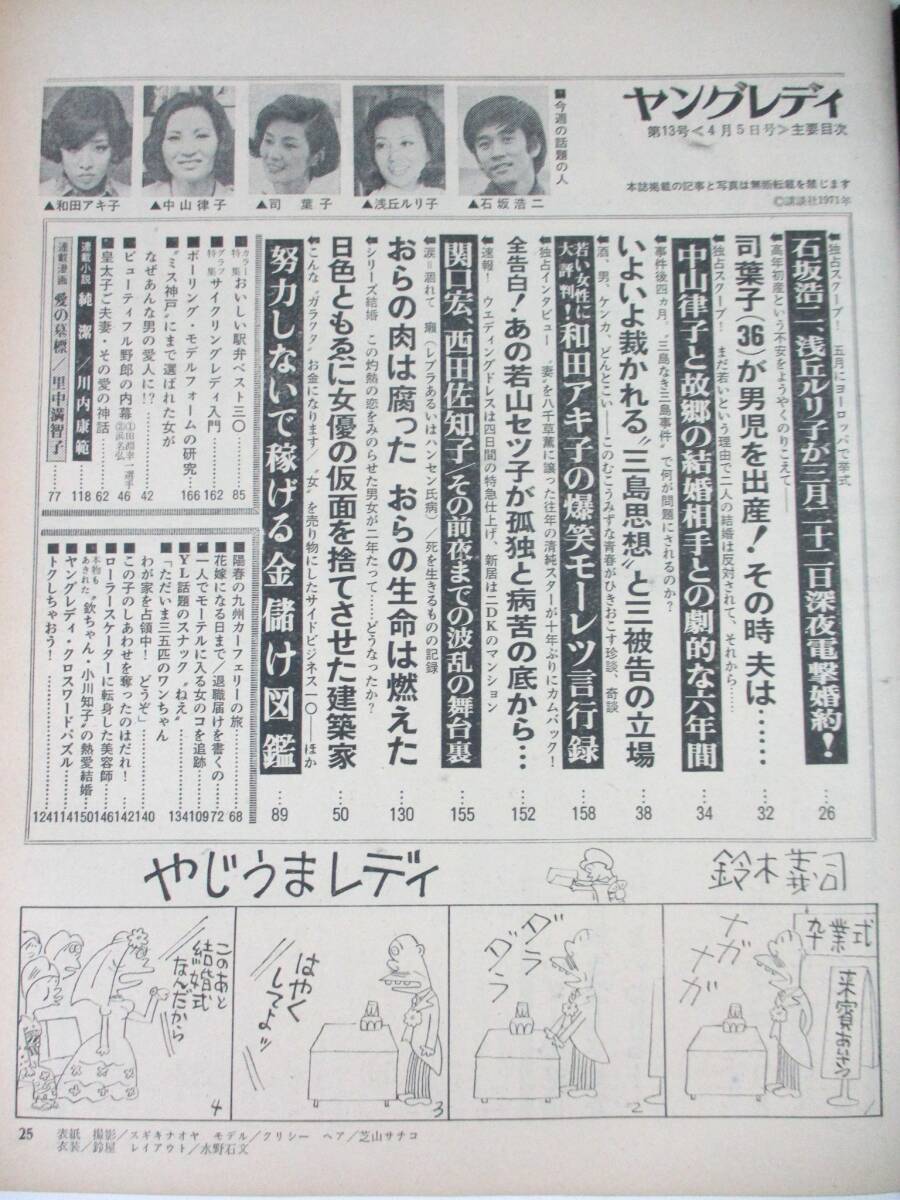 ヤングレディ
第13号<4月5日号>主要目次
本誌掲載の記事と写真は無断転載を禁じます
©講談社1971年
■今週の話題の人
▲石坂浩二
▲浅丘ルリ子
▲司 葉子
▲中山律子
▲和田アキ子
独占スクープ! 五月にヨーロッパで挙式
石坂浩二、浅丘ルリ子が三月二十二日深夜電撃婚約!…26
高年初産という不安をようやくのりこえて──
司葉子(36)が男児を出産!その時 夫は……
…32
独占スクープ! まだ若いという理由で二人の結婚は反対されて、それから……
中山律子と故郷の結婚相手との劇的な六年間
…34
事件後四ヵ月。“三島なき三島事件”で何が問題にされるのか?
いよいよ裁かれる“三島思想”と三被告の立場
…38
酒、男、ケンカ、どんとこい──このむこうみずな青春がひきおこす珍談、奇談
若い女性に大評判!和田アキ子の爆笑モーレツ言行録
…158
独占インタビュー “妻”を八千草薫に譲った往年の清純スターが十年ぶりにカムバック!
全告白!あの若山セツ子が孤独と病苦の底から…
…152
速報! ウエディングドレスは四日間の特急仕上げ、新居は二DKのマンション
関口宏、西田佐知子/その前夜までの波乱の舞台裏
…155
涙=涸れて 癩(レプラあるいはハンセン氏病)/死を生きるものの記録
おらの肉は腐った おらの生命は燃えた
…130
シリーズ結婚 この灼熱の恋をみのらせた男女が二年たって……どうなったか?
日色ともゑに女優の仮面を捨てさせた建築家
…50
こんな“ガラクタ”お金になります/“女”を売り物にしたサイドビジネス一〇──ほか
努力しないで稼げる金儲け図鑑
…89
■カラー特集 おいしい駅弁ベスト三〇 85
■グラフ特集 サイクリングレディ入門 162
■ボーリング・モデルフォームの研究 166
■“ミス神戸”にまで選ばれた女が
なぜあんな男の愛人に!? 42
■ビューティフル野郎の内幕 46
■皇太子ご夫妻・その愛の神話 62
連載小説 純潔/川内康範 118
連載漫画 愛の墓標/里中満智子 77
■陽春の九州カーフェリーの旅 68
■花嫁になる日まで/退職届けを書くの 72
■一人でモーテルに入る女のコを追跡 109
■YL話題のスナック“ねえ” 134
■「ただいま三五匹のワンちゃん
わが家を占領中! どうぞ」 140
■この子のしあわせを奪ったのはだれ! 142
■ローラースケーターに転身した美容師 146
■本物もあきれた“欽ちゃん・小川知子”の熱愛結婚 150
■ヤングレディ・クロスワードパズル 114
■トクしちゃおう! 124
やじうまレディ
鈴木義司
卒業式
来賓あいさつ
ナガナガ
1
ダラダラ
2
はやくしてよッ
3
このあと結婚式なんだから
4
25
表紙 撮影/スギキナオヤ モデル/クリシー ヘア/芝山サチコ
衣装/鈴屋 レイアウト/水野石文